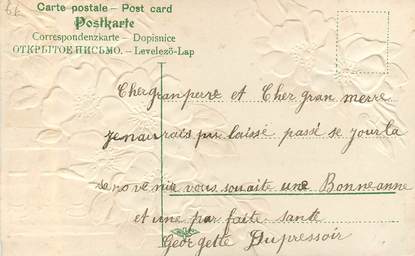 Carte postale – Post card
Postkarte
Correspondenzkarte – Dopisnice
ОТКРЫТОЕ ПИСЬМО. – Levelező-Lap
Cher granperre et Cher gran merre
je naurais pu laissé passé se jour la
se no ve mie vous souaite une Bonne anne
et une par faite santé
Georgette Dupressoir